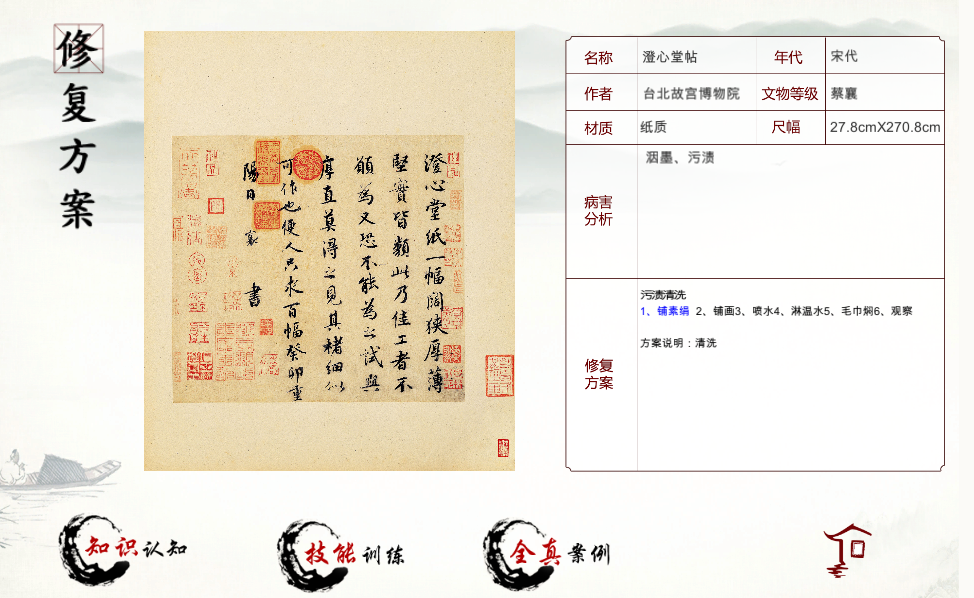 修复方案
澄心堂纸一幅阔狭厚薄
坚实皆类此乃佳工者不
愿为又恐不能为之试与
厚直莫得之见其楮细似
可作也便人只求百幅癸卯重
阳日襄书
名称 澄心堂帖 年代 宋代
作者 台北故宫博物院 文物等级 蔡襄
材质 纸质 尺幅 27.8cmX270.8cm
病害
分析
洇墨、污渍
修复
方案
污渍清洗
1、铺素绢 2、铺画3、喷水4、淋温水5、毛巾焖6、观察
方案说明：清洗
知识认知
技能训练
全真案例